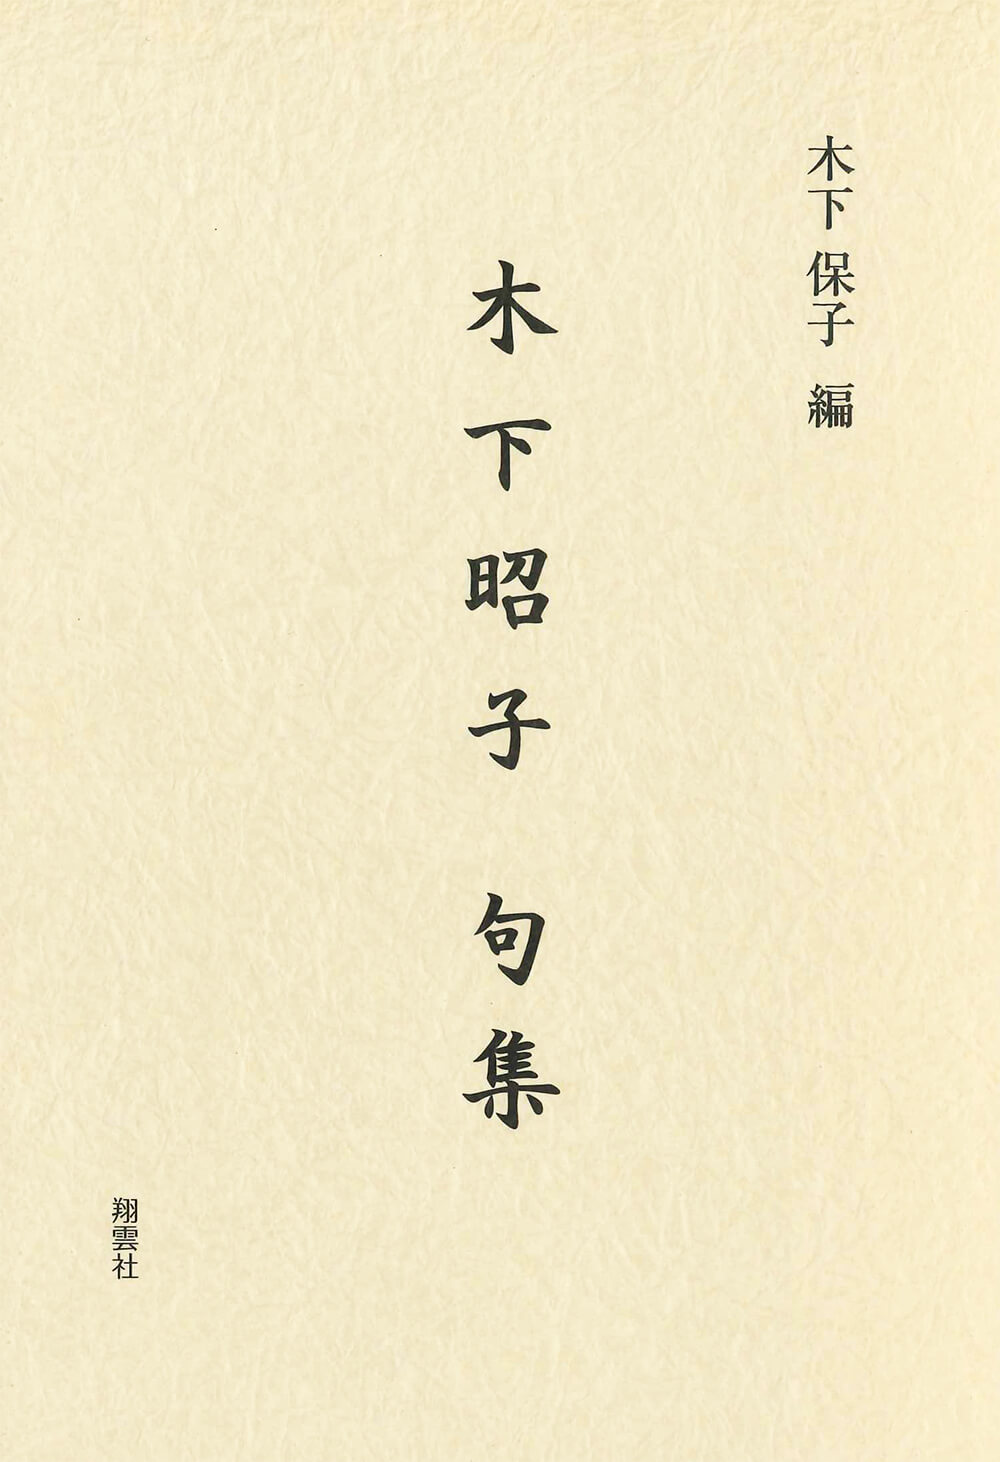 木下 保子 編
木下昭子 句集
翔雲社